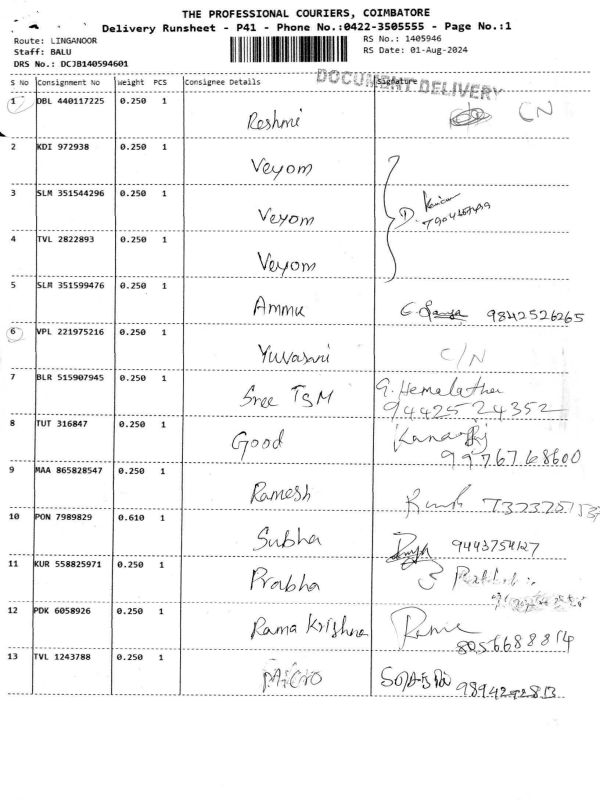 THE PROFESSIONAL COURIERS, COIMBATORE
Delivery Runsheet - P41 - Phone No.:0422-3505555 - Page No.:1
Route: LINGANOOR
Staff: BALU
DRS No.: DCJB140594601
RS No.: 1405946
RS Date: 01-Aug-2024
DOCUMENT DELIVERY
S No Consignment No Weight PCS Consignee Details Signature
1 DBL 440117225 0.250 1 Reshmi CN
2 KDI 972938 0.250 1 Veyom
3 SLM 351544296 0.250 1 Veyom D.
4 TVL 2822893 0.250 1 Veyom
5 SLM 351599476 0.250 1 Ammu G. 9842526265
6 VPL 221975216 0.250 1 Yuvasri C/N
7 BLR 515907945 0.250 1 Sree TSM G. Hemalatha
9442524352
8 TUT 316847 0.250 1 Good Kanagraj
9976768600
9 MAA 865828547 0.250 1 Ramesh
10 PON 7989829 0.610 1 Subha 9443754127
11 KUR 558825971 0.250 1 Prabha
12 PDK 6058926 0.250 1 Rama Krishna
8056688814
13 TVL 1243788 0.250 1